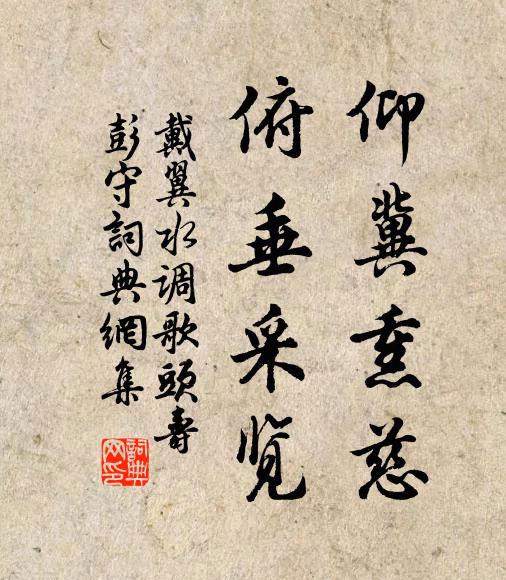 仰冀熏慈
俯垂采览
戴翼水调歌頭壽
彭守詞典網集
詞典
网印